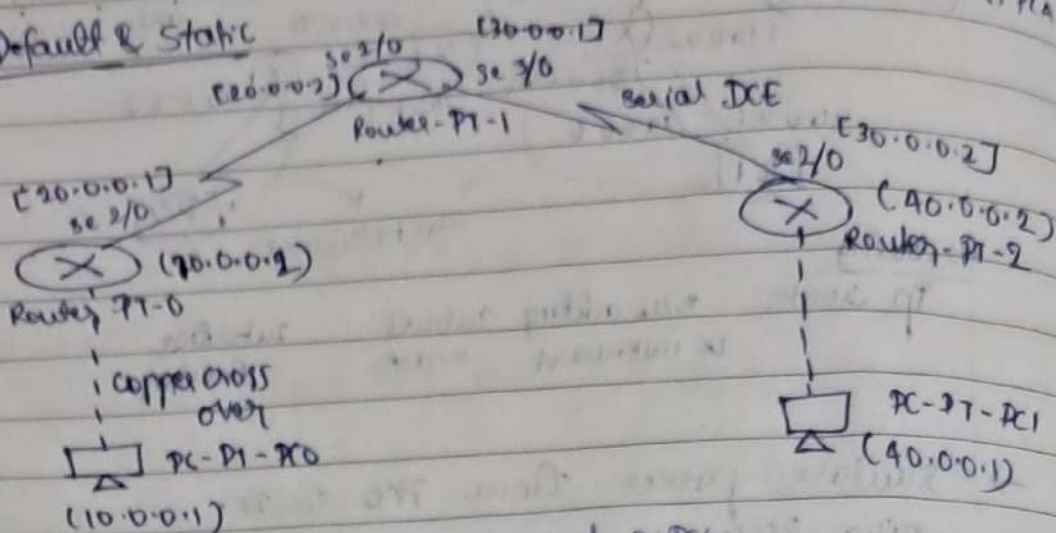 Default & Static
[30.0.0.1]
se 2/0
(20.0.0.2)
se 3/0
Router-PT-1
Serial DCE
[20.0.0.1]
se 2/0
[30.0.0.2]
se 2/0
(40.0.0.2)
Router-PT-2
(10.0.0.2)
Router PT-0
copper cross
over
PC-PT-PC0
(10.0.0.1)
PC-PT-PC1
(40.0.0.1)